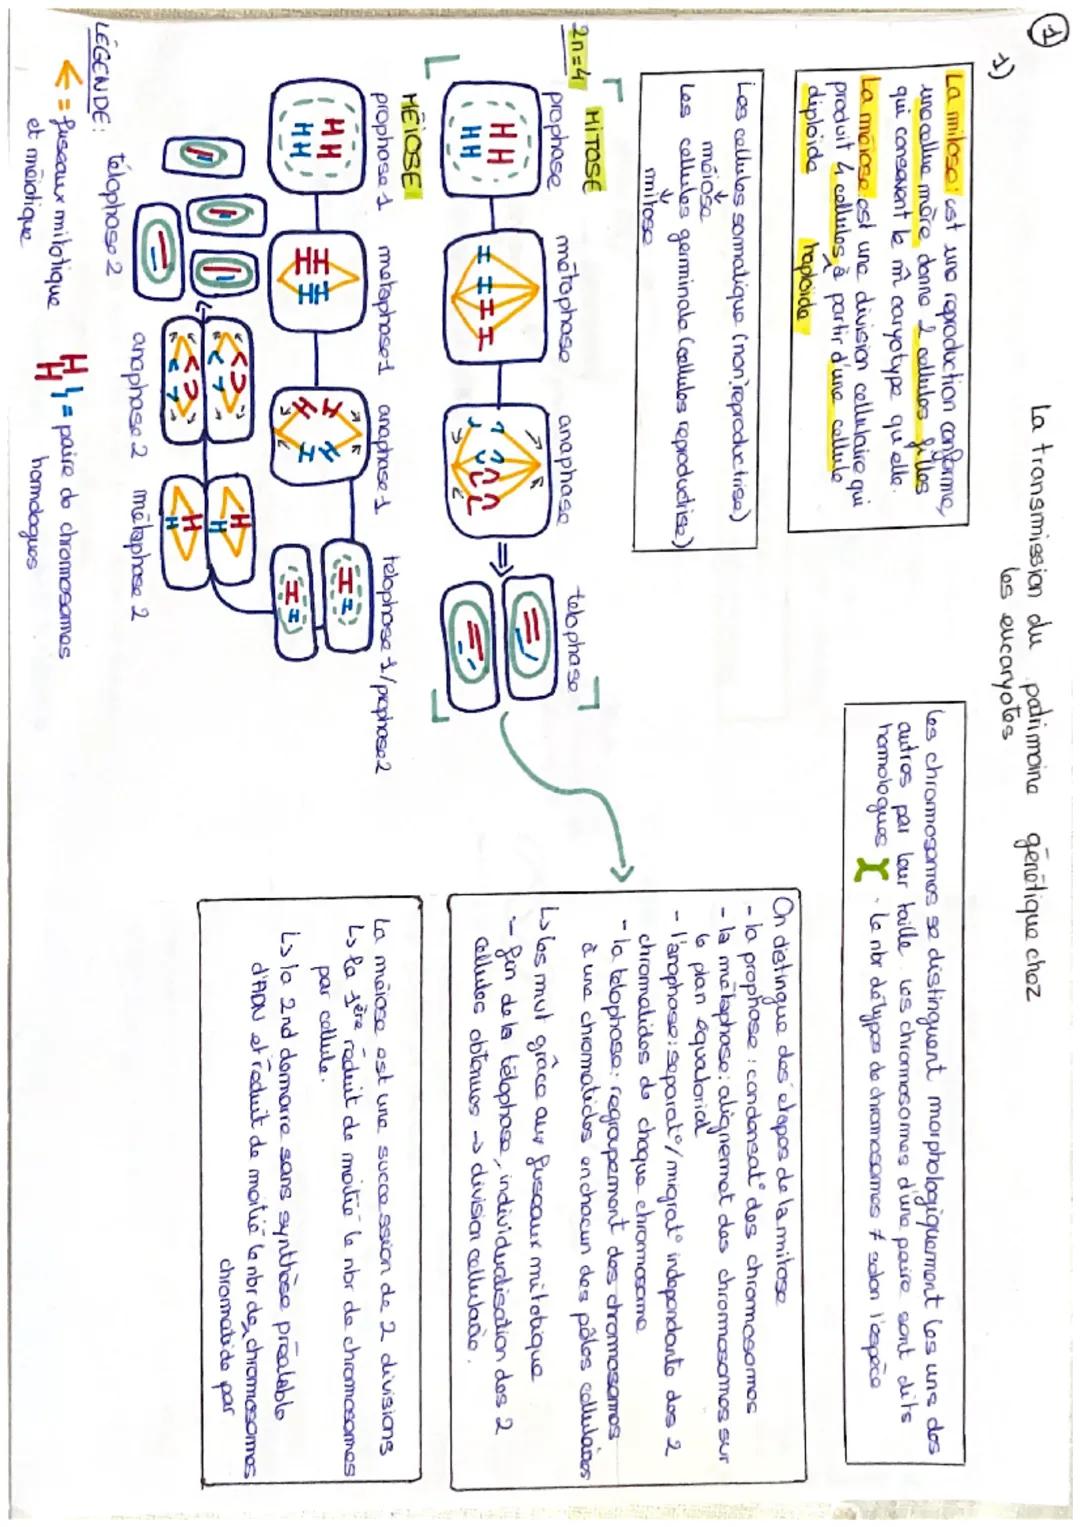 1
La transmission du patrimoine génétique chez
les eucaryotes
1)
La mitose: est une reproduction conforme,
une cellue mère donne 2 cellules filles
qui conservent le m̂ caryotype qu'elle.
La méiose est une division cellulaire qui
produit 4 cellules, à partir d'une cellule
diploïde haploïde
Les chromosomes se distinguent morphologiquement les uns des
autres par leur taille. Les chromosomes d'une paire sont dits
homologues. le nbr de types de chromosomes ≠ selon l'espèce
Les cellules somatique (non reproductrise)
↓
méiose
Les cellules germinale (cellules reproductrise)
↓
mitose
MITOSE
2n=4
prophase métaphase anaphase télophase
On distingue des étapes de la mitose
- la prophase : condensat° des chromosomes
- la métaphase: alignement des chromosomes sur
le plan équatorial
- l'anaphase: séparat°/migrat° indépendante des 2
chromatides de chaque chromosome
- la télophase: regroupement des chromosomes
à une chromatides en chacun des pôles cellulaires
↳ les mvt grâce aux fuseaux mitotique
- fin de la télophase, individualisation des 2
cellules obtenues → division cellulaire.
MÉIOSE
prophase 1 métaphase 1 anaphase 1 télophase 1/prophase 2
télophase 2 anaphase 2 métaphase 2
La méiose est une succession de 2 divisions
↳ la 1ère réduit de moitié le nbr de chromosomes
par cellule.
↳ la 2nd démarre sans synthèse préalable
d'ADN et réduit de moitié le nbr de chromosomes
chromatide par
LÉGENDE:
← = fuseaux mitotique
et méiotique
} = paire de chromosomes
homologues